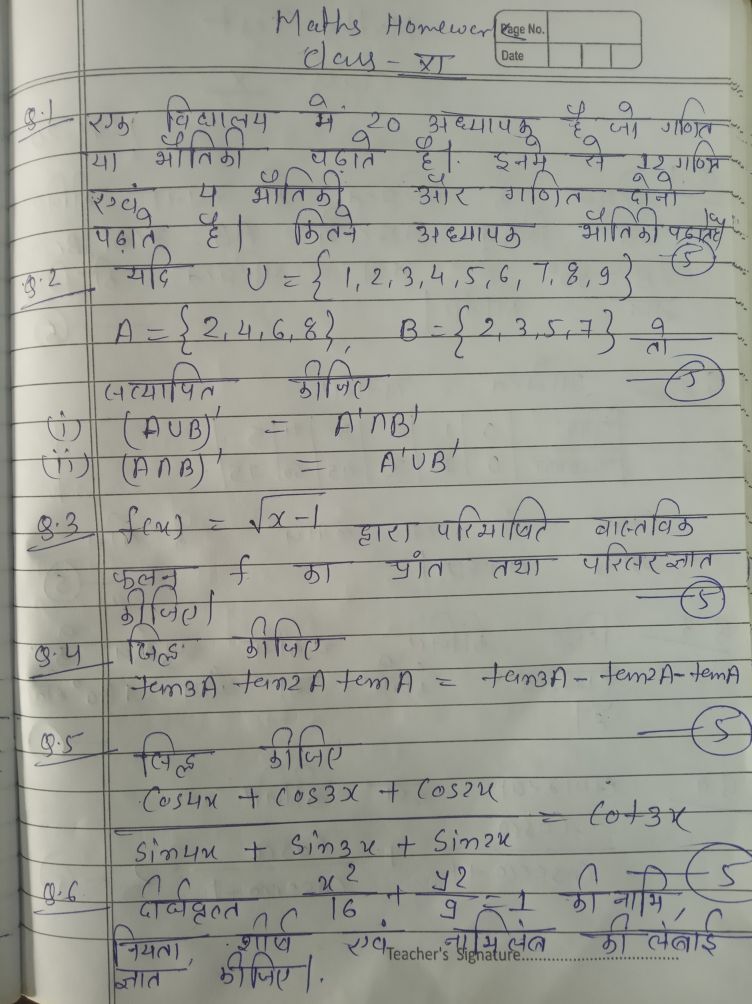 Maths Homework
Page No.
Class - XI
Date
Q.1 एक विद्यालय में 20 अध्यापक है जो गणित
या भौतिकी पढ़ाते है। इनमे से 12 गणित
एवं 4 भौतिकी और गणित दोनो
पढ़ाते है। कितने अध्यापक भौतिकी पढ़ाते है।
5
Q.2 यदि U = {1, 2, 3, 4, 5, 6, 7, 8, 9}
A = {2, 4, 6, 8}, B = {2, 3, 5, 7}
सत्यापित कीजिए 5
(i) (A∪B)' = A'∩B'
(ii) (A∩B)' = A'∪B'
Q.3 f(x) = √x-1 द्वारा परिभाषित वास्तविक
फलन f का प्रांत तथा परिसर ज्ञात
कीजिए। 5
Q.4 सिद्ध कीजिए
tan3A tan2A tanA = tan3A - tan2A - tanA
5
Q.5 सिद्ध कीजिए
cos4x + cos3x + cos2x
= cot3x
sin4x + sin3x + sin2x
5
Q.6 दीर्घवृत्त x²/16 + y²/9 = 1 की नाभि,
नियता, शीर्ष एवं नाभिलंब की लंबाई
Teacher's Signature
ज्ञात कीजिए।